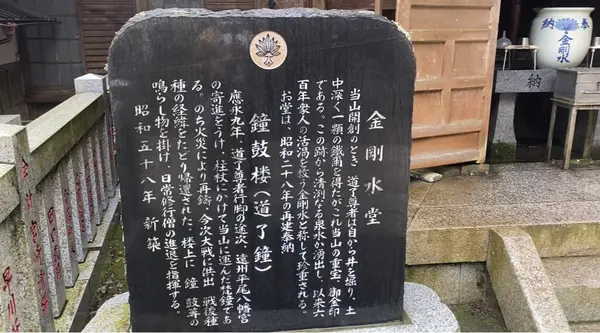 金剛水堂
当山開創のとき 道了尊者は自から井を掘り、土
中深く一顆の鐵甫を得たがこれ当山の重宝 御金印
である。この跡から清冽なる泉水が湧出し、以来六
百年衆人の沽渇を救う金剛水と称して珍重される。
お堂は、昭和二十八年の再建奉納
鐘鼓楼(道了鐘)
應永九年、道了尊者行脚の途次、遠州平尾八幡宮
の寄進をうけ、柱杖にかけて当山に運んだ梵鐘であ
る。のち火災により再鋳、今次大戦に供出、戦後種
種の経緯をたどり帰還された。楼上に 鐘 鼓等の
鳴らし物を掛け、日常修行僧の進退を指揮する。
昭和五十八年 新築
奉納
金剛水
納